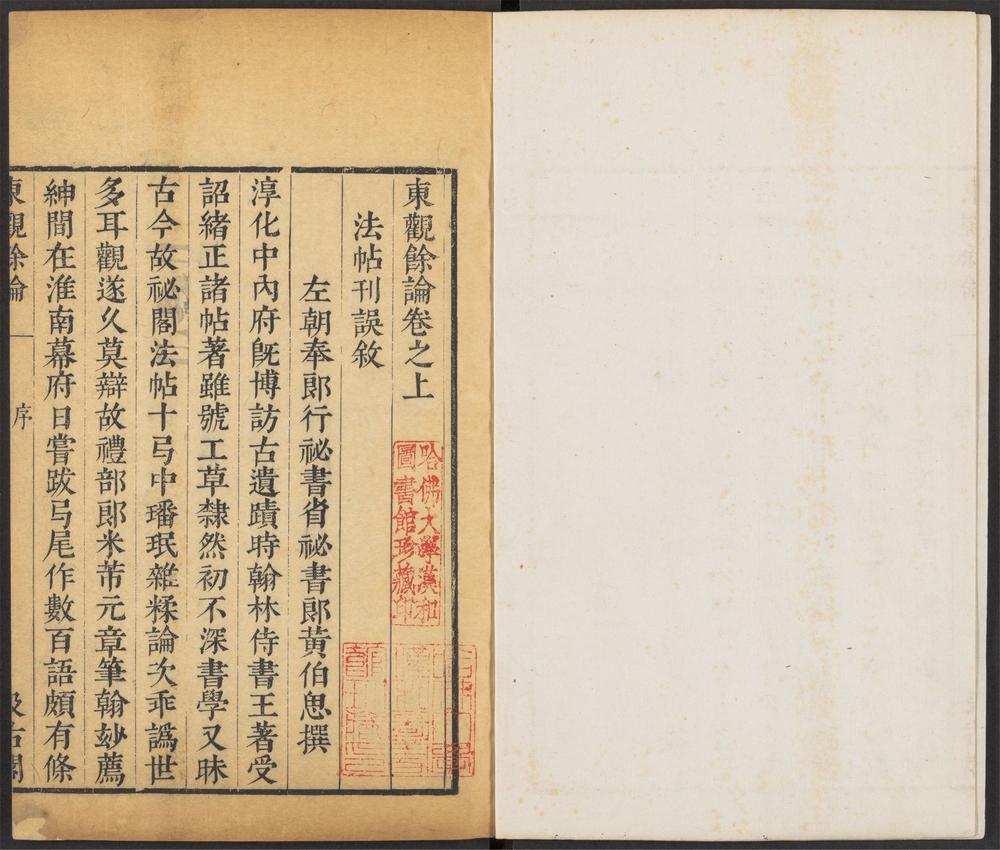 東觀餘論卷之上
法帖刊誤敘
左朝奉郎行祕書省祕書郎黃伯思撰
淳化中內府旣博訪古遺蹟時翰林侍書王著受
詔緒正諸帖著雖號工草隸然初不深書學又昧
古今故祕閣法帖十弓中璠珉雜糅論次乖譌世
多耳觀遂久莫辯故禮部郎米芾元章筆翰妙薦
紳間在淮南幕府日嘗跋弓尾作數百語頗有條
東觀餘論
序
汲古閣
哈佛大學漢和
圖書館珍藏印